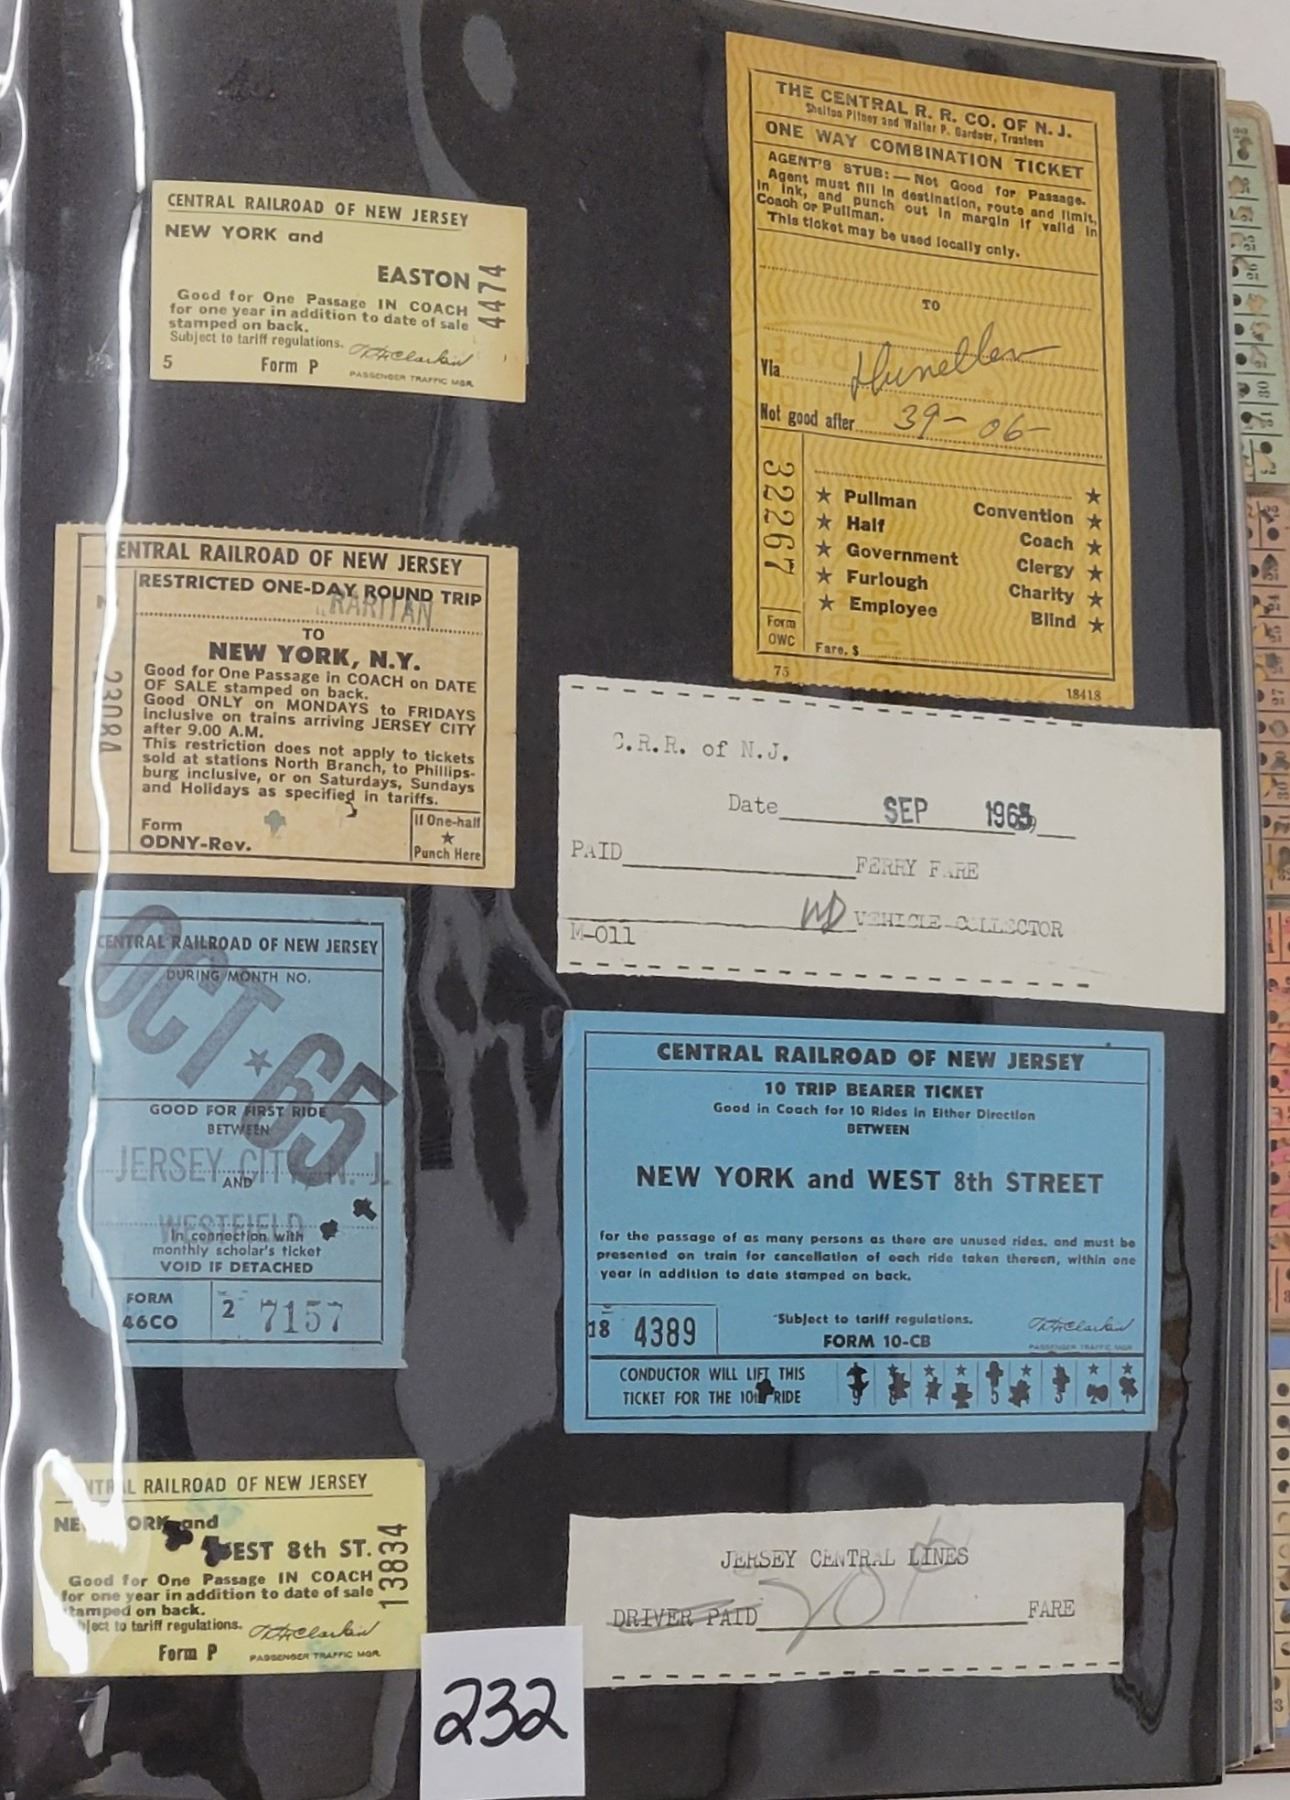 CENTRAL RAILROAD OF NEW JERSEY
NEW YORK and
EASTON
Good for One Passage IN COACH
for one year in addition to date of sale
stamped on back.
Subject to tariff regulations.
5 Form P
PASSENGER TRAFFIC MGR.
4474
THE CENTRAL R. R. CO. OF N. J.
Shelton Pitney and Walter P. Gardner, Trustees
ONE WAY COMBINATION TICKET
AGENT'S STUB:— Not Good for Passage.
Agent must fill in destination, route and limit,
in ink, and punch out in margin if valid in
Coach or Pullman.
This ticket may be used locally only.
TO
Via
Not good after 39-06-
32267
★ Pullman Convention ★
★ Half Coach ★
★ Government Clergy ★
★ Furlough Charity ★
★ Employee Blind ★
Form
OWC
Fare, $
75 18418
ENTRAL RAILROAD OF NEW JERSEY
RESTRICTED ONE-DAY ROUND TRIP
RARITAN
TO
NEW YORK, N.Y.
Good for One Passage in COACH on DATE
OF SALE stamped on back.
Good ONLY on MONDAYS to FRIDAYS
inclusive on trains arriving JERSEY CITY
after 9.00 A.M.
This restriction does not apply to tickets
sold at stations North Branch, to Phillips-
burg inclusive, or on Saturdays, Sundays
and Holidays as specified in tariffs.
Form
ODNY-Rev.
If One-half
★
Punch Here
23084
C.R.R. of N.J.
Date SEP 1965
PAID FERRY FARE
VEHICLE COLLECTOR
M-011
CENTRAL RAILROAD OF NEW JERSEY
DURING MONTH NO.
OCT ★ 65
GOOD FOR FIRST RIDE
BETWEEN
JERSEY CITY, N. J.
AND
WESTFIELD
In connection with
monthly scholar's ticket
VOID IF DETACHED
FORM
46CO
2 7157
CENTRAL RAILROAD OF NEW JERSEY
10 TRIP BEARER TICKET
Good in Coach for 10 Rides in Either Direction
BETWEEN
NEW YORK and WEST 8th STREET
for the passage of as many persons as there are unused rides, and must be
presented on train for cancellation of each ride taken thereon, within one
year in addition to date stamped on back.
18 4389
Subject to tariff regulations.
FORM 10-CB
PASSENGER TRAFFIC MGR.
CONDUCTOR WILL LIFT THIS
TICKET FOR THE 10th RIDE
NTRAL RAILROAD OF NEW JERSEY
NEW YORK and
WEST 8th ST.
Good for One Passage IN COACH
for one year in addition to date of sale
stamped on back.
Subject to tariff regulations.
Form P
PASSENGER TRAFFIC MGR.
13834
JERSEY CENTRAL LINES
DRIVER PAID 70¢ FARE
232